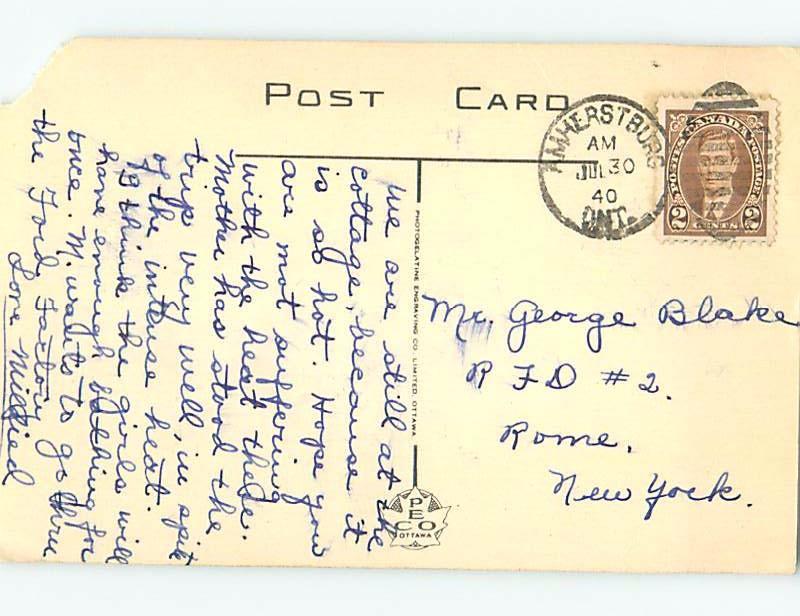 POST CARD
AMHERSTBURG
AM
JUL 30
40
ONT.
POSTES CANADA POSTAGE
2 CENTS 2
we are still at the
cottage, because it
is so hot. Hope you
are not suffering
with the heat there.
Mother has stood the
trip very well, in spite
of the intense heat.
I think the girls will
have enough bathing for
once. M. wants to go thru
the Ford Factory
Love
PHOTOGELATINE ENGRAVING CO. LIMITED, OTTAWA.
PECO
OTTAWA
Mr. George Blake
R F D # 2.
Rome,
New York.